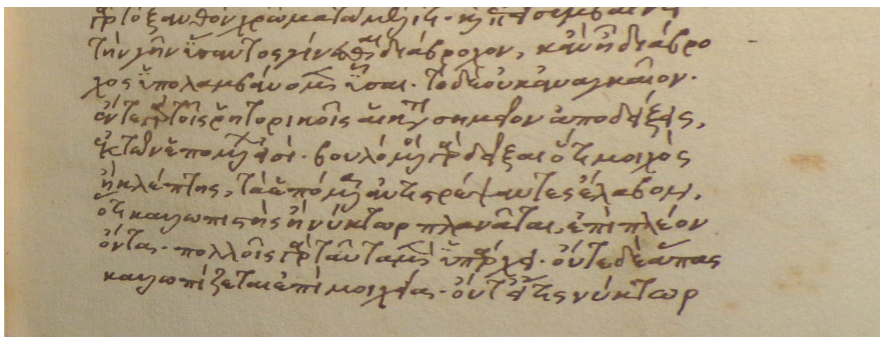 γὰρ τὸ ξανθὸν χρῶμα τῶ μέλιτι· καὶ ἐπεὶ συμβαίνει
τὴν γῆν ὕσαντος γίνεσθαι διάβροχον, κἂν ἦ διάβρο
χος ὑπολαμβάνομεν ὗσαι· τὸ δὲ οὐκ ἀναγκαῖον·
ἔν τε τοῖς ῥητορικοῖς αἱ κατὰ τὸ σημεῖον ἀποδείξεις,
ἐκ τῶν ἑπομένων εἰσί· βουλόμενοι γὰρ δεῖξαι ὅτι μοιχὸς
ἢ κλέπτης, τὰ ἑπόμενα ἀντιστρέψαντες ἔλαβον,
ὅτι καλλωπιστὴς ἢ νύκτωρ πλανᾶται, ἐπὶ πλέον
ὄντα· πολλοῖς γὰρ ταῦτα μὲν ὑπάρχει· οὔτε δὲ ἅπας
καλλωπίζεται ἐπὶ μοιχείας· οὔτ' εἴ τις νύκτωρ